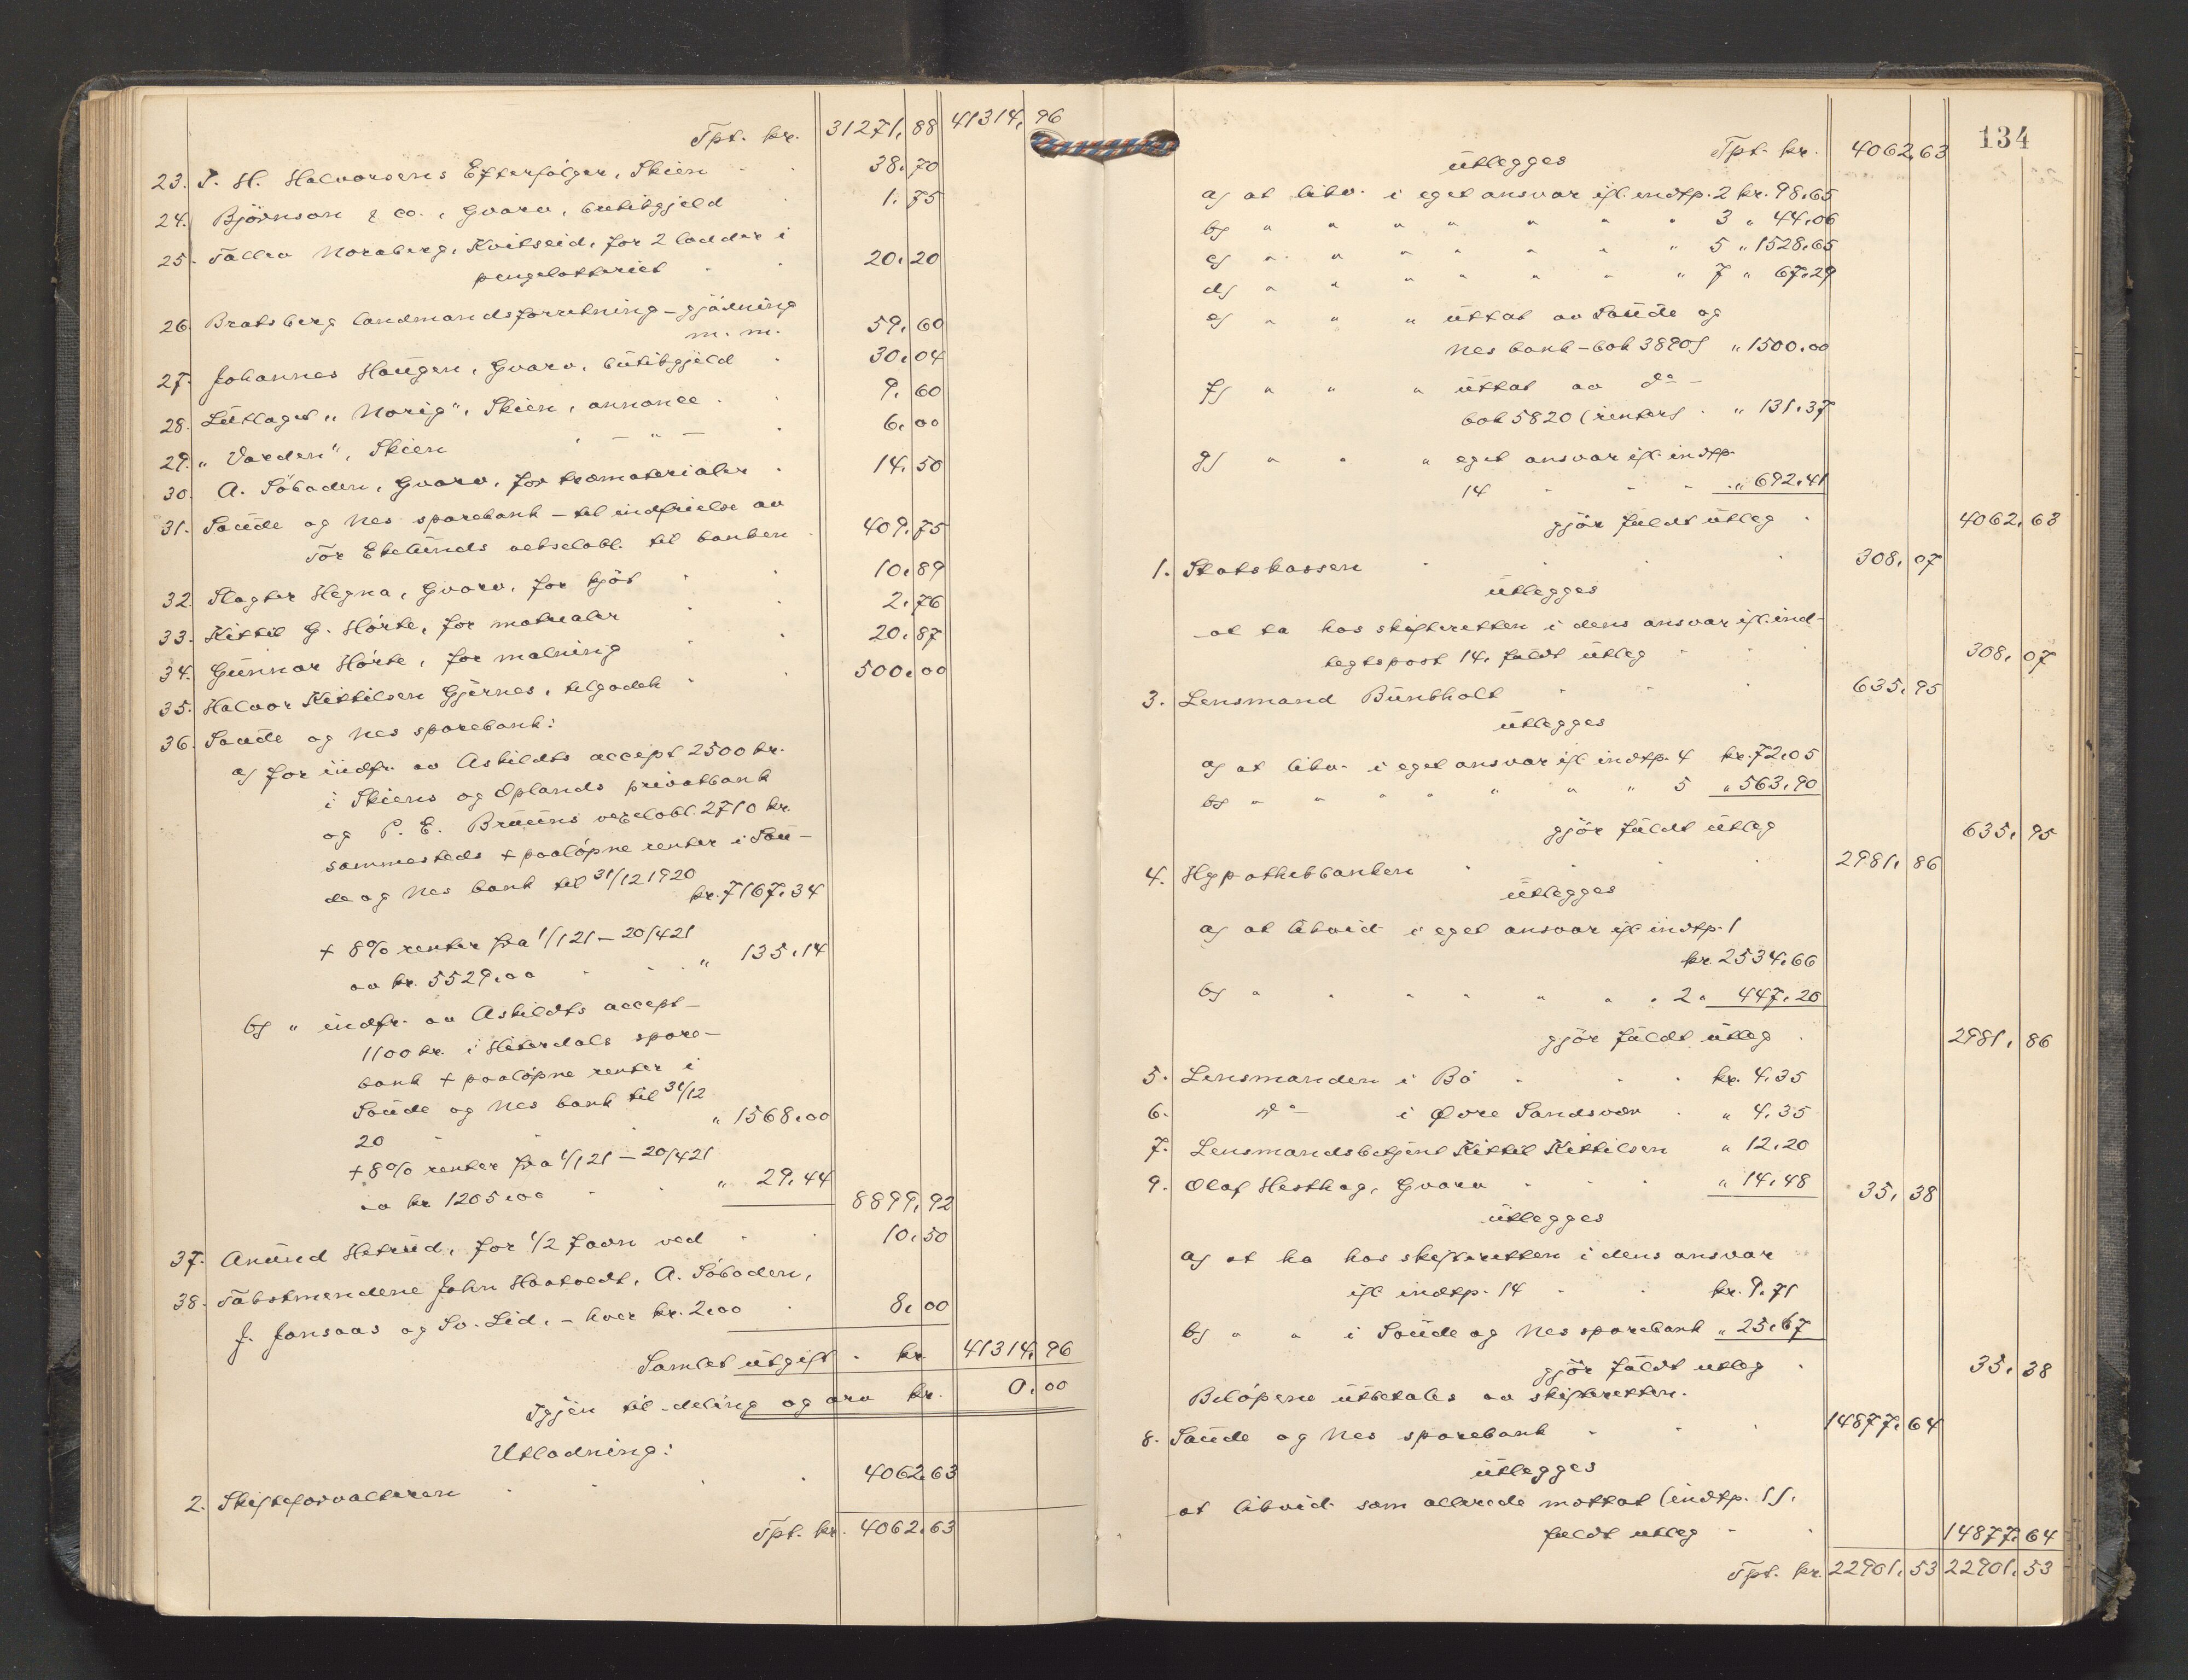 Tpt. kr. 31271.88 41314.96
23. P. H. Halvorsens Efterfølger, Skien 38.70
24. Bjørnson & co., Gvarv, butikgjeld 1.75
25. Tallev Noraberg, Kvitseid, for 2 lodder i
pengelotteriet 20.20
26. Bratsberg landmandsforretning - gjødning
m. m. 59.60
27. Johannes Haugen, Gvarv, butikgjeld 30.04
28. Lutlaget "Norig", Skien, annonce 9.60
29. "Varden", Skien — " — 6.00
30. A. Søboden, Gvarv, for træmaterialer 14.50
31. Saude og Nes sparebank - til indfrielse av
Tor Ekelunds vekselobl. til banken 409.75
32. Slagter Hegna, Gvarv, for kjøt 10.89
33. Kittil G. Hørte, for matvaler 2.76
34. Gunnar Hørte, for malning 20.87
35. Halvor Kittilsen Gjernes, tilgodeh 500.00
36. Saude og Nes sparebank:
a) for indfr. av Askildts accept 2500 kr.
i Skiens og Oplands privatbank
og P. E. Bruuns vexelobl. 2710 kr.
sammesteds + paaløpne renter i Sau-
de og Nes bank til 31/12 1920
kr. 7167.34
+ 8% renter fra 1/1 21 - 20/4 21
av kr. 5529.00 " 135.14
b) " indfr. av Askildts accept-
1100 kr. i Hiterdals spare-
bank + paaløpne renter i
Saude og Nes bank til 31/12
20 " 1568.00
+ 8% renter fra 1/1 21 - 20/4 21
av kr 1205.00 " 29.44
8899.92
37. Anund Hetrud, for 1/2 favn ved 10.50
38. Takstmendene John Haatvedt, A. Søboden,
J. Jonsaas og Sv. Lid, - hver kr. 2.00 8.00
Samlet utgift kr 41314.96
Igjen til deling og arv kr. 0.00
Utlodning:
2. Skifteforvalteren 4062.63
Tpt. kr. 4062.63
134
Tpt. kr. 4062.63
utlegges
a) at likv. i eget ansvar ifl. indtp. 2 kr. 98.65
b) " " " " " " " 3 " 44.06
c) " " " " " " " 5 " 1528.65
d) " " " " " " " 7 " 67.29
e) " " " uttat av Saude og
Nes bank - bok 3890) " 1500.00
f) " " " uttat av do -
bok 5820 (renter) " 131.37
g) " " " eget ansvar ifl. indtp.
14 " 692.41
gjør fuldt utleg 4062.63
1. Statskassen 308.07
utlegges
at ta hos skifteretten i dens ansvar ifl. ind-
tegtspost 14, fuldt utleg 308.07
3. Lensmand Bunkholt 635.95
utlegges
a) at likv. i eget ansvar ifl indtp. 4 kr. 72.05
b) " " " " " " " 5 " 563.90
gjør fuldt utleg 635.95
4. Hypothekbanken 2981.86
utlegges
a) at likvid. i eget ansvar ifl indtp. 1
kr. 2534.66
b) " " " " " " " 2 " 447.20
gjør fuldt utleg 2981.86
5. Lensmanden i Bø kr. 4.35
6. do - i Øvre Sandsvær " 4.35
7. Lensmandsbetjent Kittil Kittilsen " 12.20
9. Olaf Hesthag, Gvarv " 14.48 35.38
utlegges
a) at ha hos skifteretten i dens ansvar
ifl indtp. 14 kr. 9.71
b) " " i Saude og Nes sparebank " 25.67
gjør fuldt utleg 35.38
Beløpene utbetales av skifteretten.
8. Saude og Nes sparebank 14877.64
utlegges
at likvid. som allerede mottat (indtp. 1).
fuldt utleg 14877.64
Tpt. kr. 22901.53 22901.53